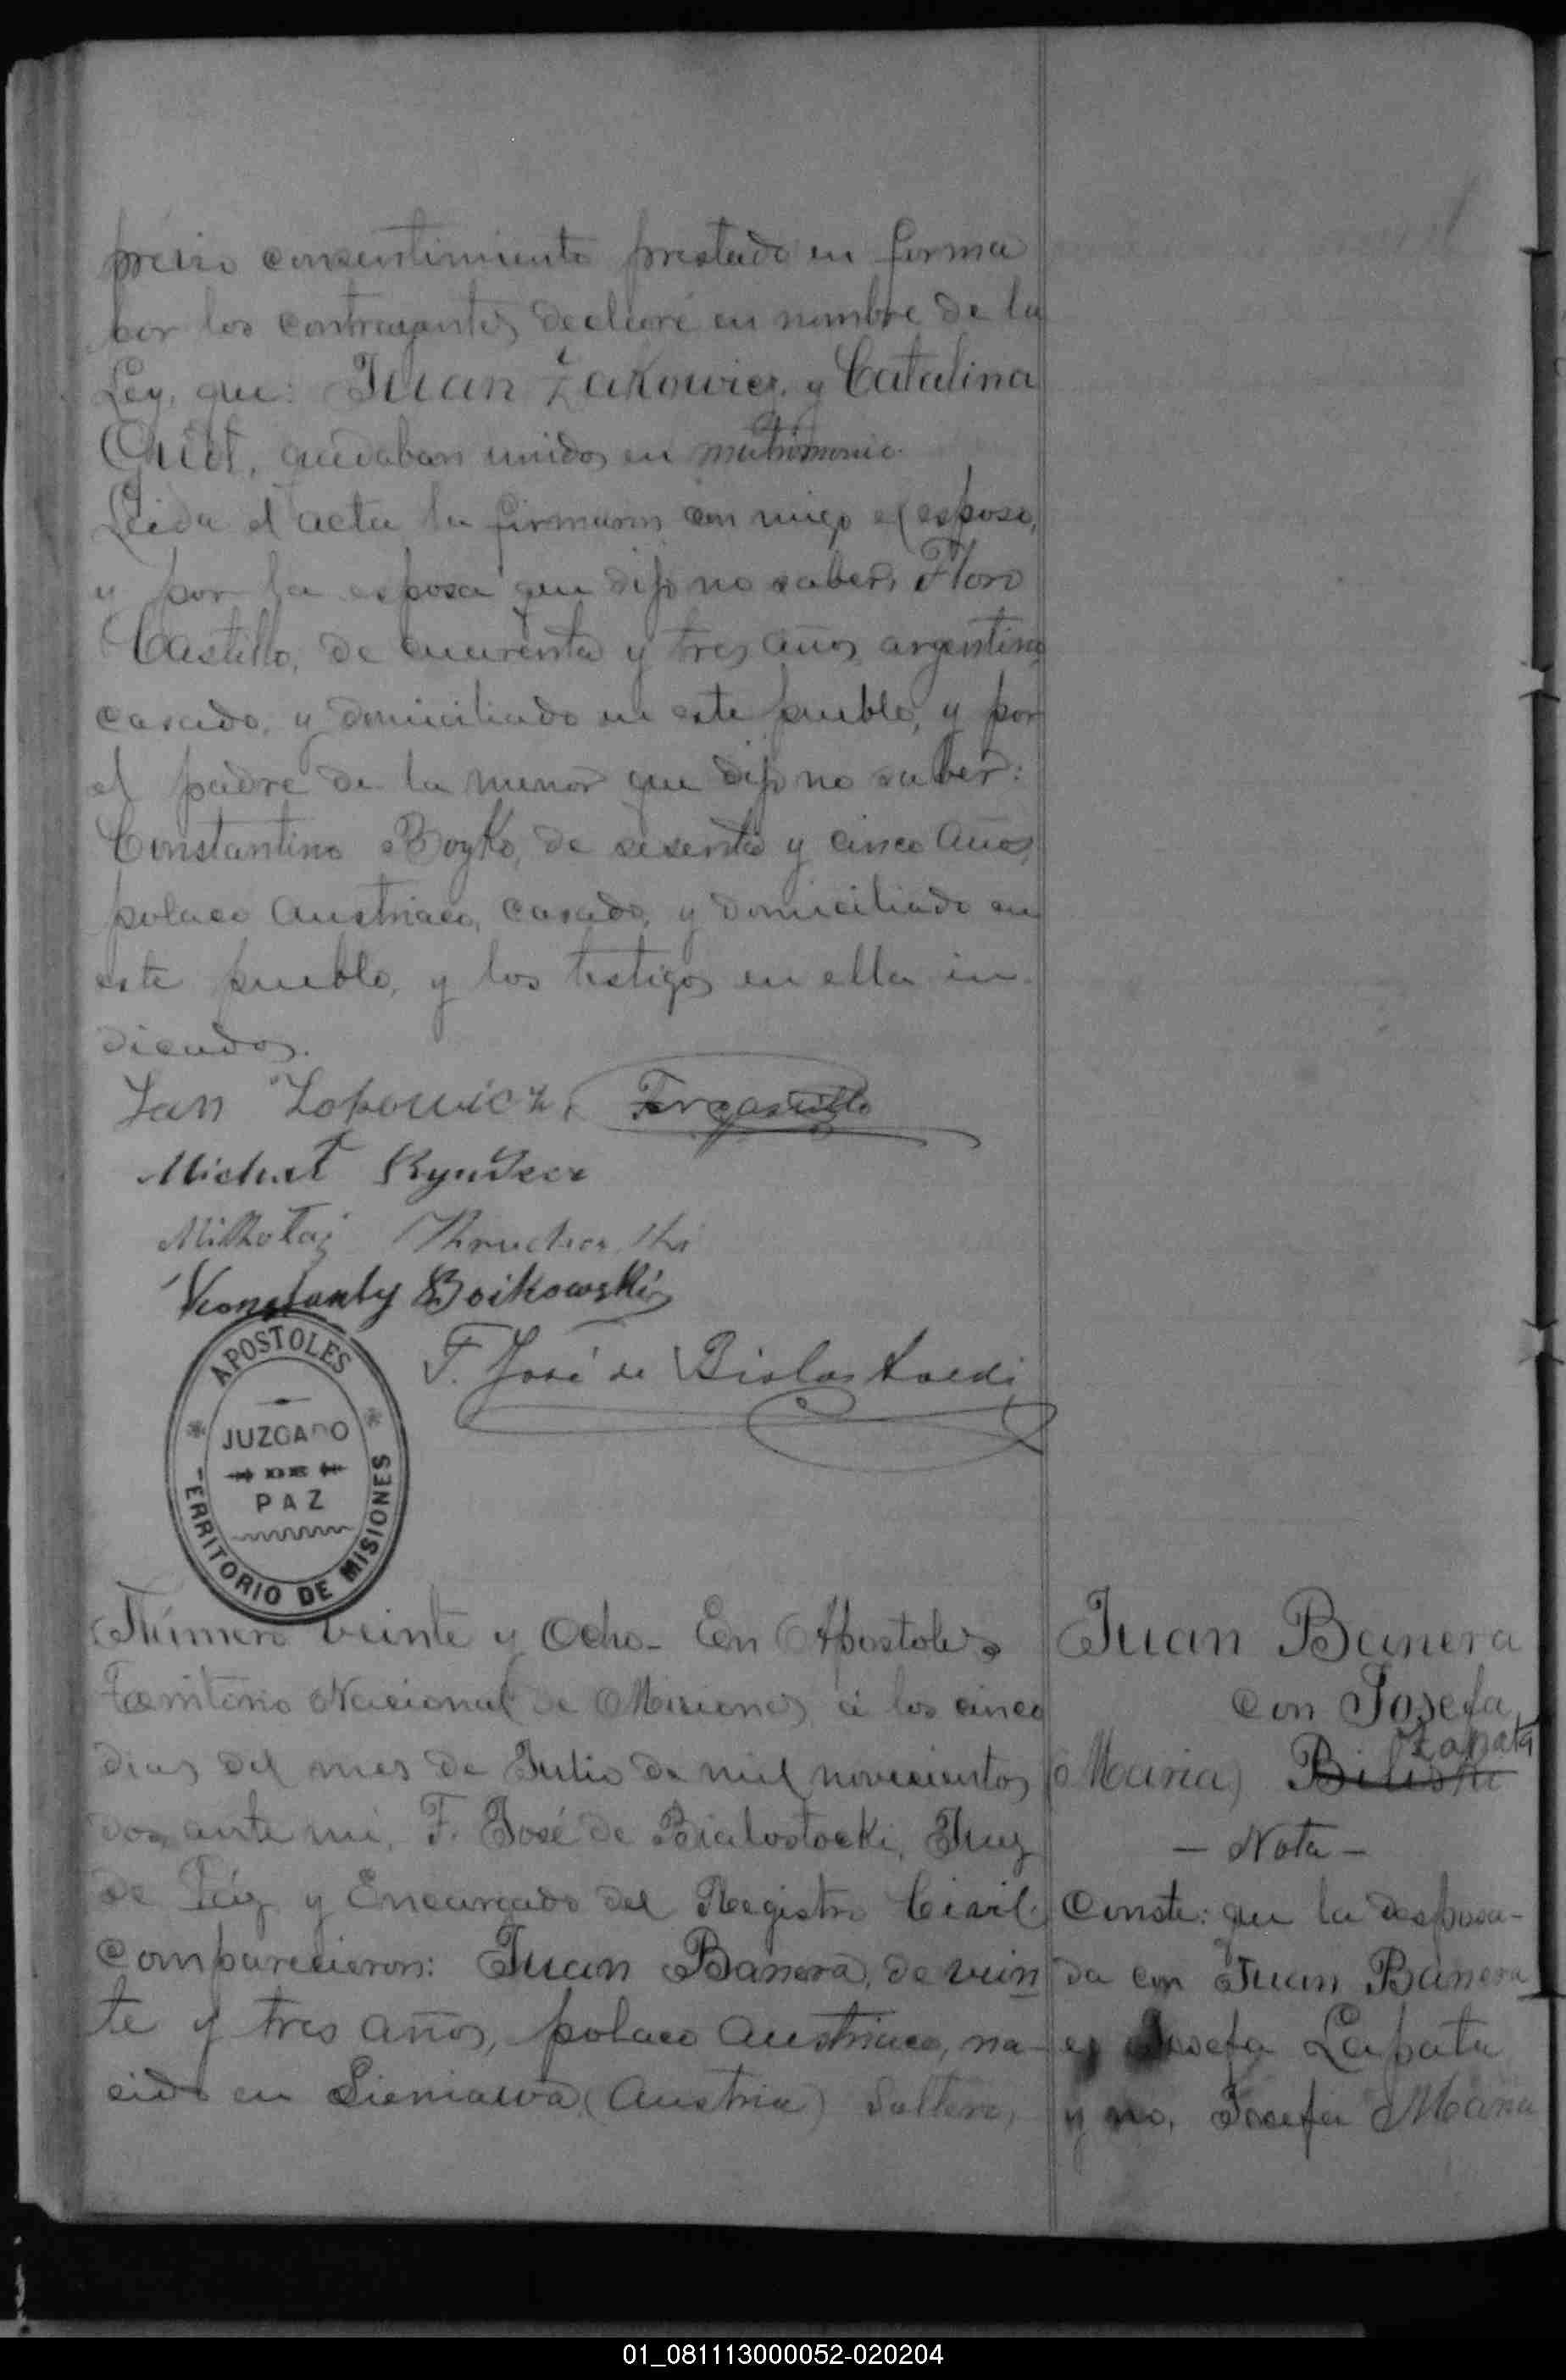 previo consentimiento prestado en forma
por los contrayentes, declaré en nombre de la
Ley, que: Juan Zakowicz, y Catalina
quedaban unidos en matrimonio.
Leida el acta la firmaron con migo el esposo,
y por la esposa que dijo no saber, Floro
Castillo, de cuarenta y tres años, argentino
casado, y domiciliado en este pueblo, y por
el padre de la menor que dijo no saber:
Constantino Boyko, de sesenta y cinco años,
polaco austriaco, casado, y domiciliado en
este pueblo, y los testigos en ella in-
dicados.
Jan
Michał
Mikołaj
Konstanty Boikowski
F. José de Bialostocki
APOSTOLES
JUZGADO
DE
PAZ
TERRITORIO DE MISIONES
Número veinte y Ocho - En Apostoles
Territorio Nacional de Misiones á los cinco
dias del mes de Julio de mil novecientos
dos, ante mi, F. José de Bialostocki, Juez
de Páz y Encargado del Registro Civil.
comparecieron: Juan Banera, de vein
te y tres años, polaco austriaco, na-
cido en Sieniawa (Austria) Soltero,
Juan Banera
con Josefa
Lapata
Maria
- Nota -
Conste: que la desposa-
da con Juan Banera
es Josefa Lapata
y no, Josefa Maria
01_081113000052-020204